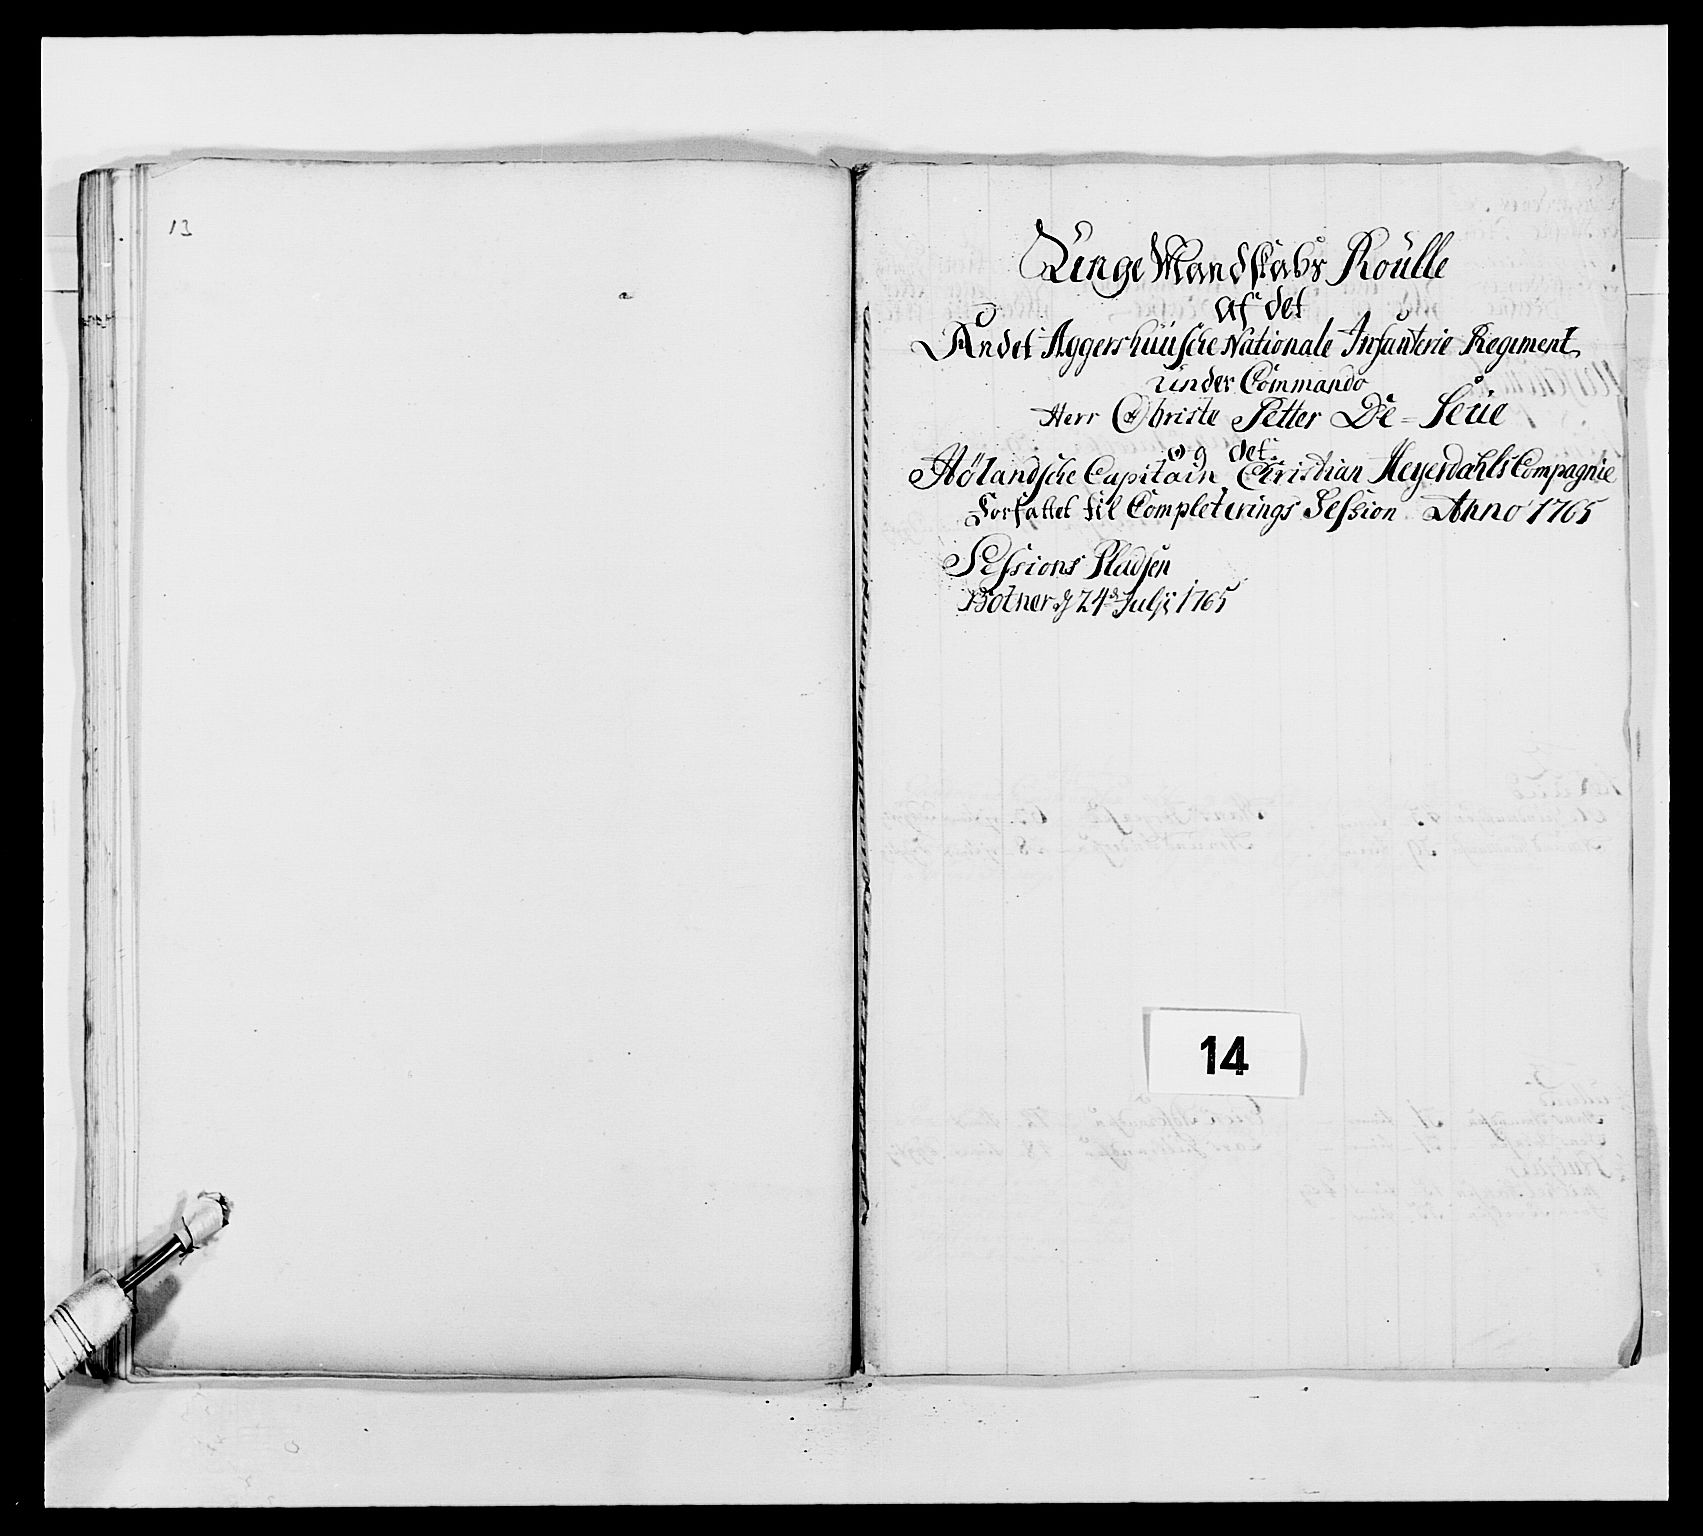 13
Unge Mandskabs Roulle
af det
Andet Aggershuusche Nationale Infanterie Regiment
under Commando
Herr Christe Petter De = Seue
og det
Hölandsche Capitain Christian Meyerdahls Compagnie
Forfattet til Completerings Session Anno 1765
Sessions Pladsen
Botner d 24de Julji 1765
14